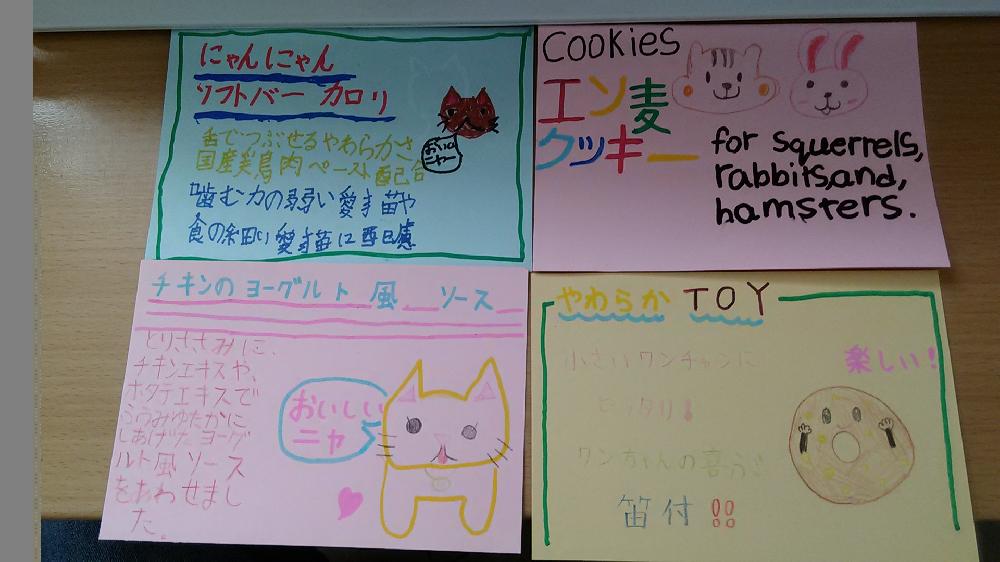 にゃんにゃん
ソフトバー カロリ
舌でつぶせるやわらかさ
国産鶏肉ペースト配合
噛む力の弱い愛猫や
食の細い愛猫に配慮
ニャー
Cookies
エン麦
クッキー
for squerrels,
rabbits,and,
hamsters.
チキンのヨーグルト風 ソース
とりささみに、
チキンエキスや、
ホタテエキスで
ふうみゆたかに
しあげたヨーグ
ルト風ソース
をあわせまし
た。
おいしい
ニャ
やわらか TOY
小さいワンチャンに
ピッタリ!
ワンちゃんの喜ぶ
笛付!!
楽しい!